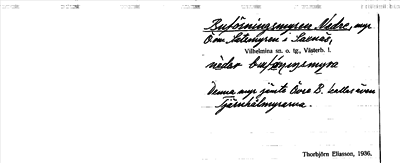 Buföringsmyren Nedre, myr
Ö om Setermyren i Saxnäs,
Vilhelmina sn. o. tg., Västerb. l.
nedar buføningsmyra
Denna myr jämte Övre B. kallas även
Tjärnholmyrarna.
Thorbjörn Eliasson, 1936.